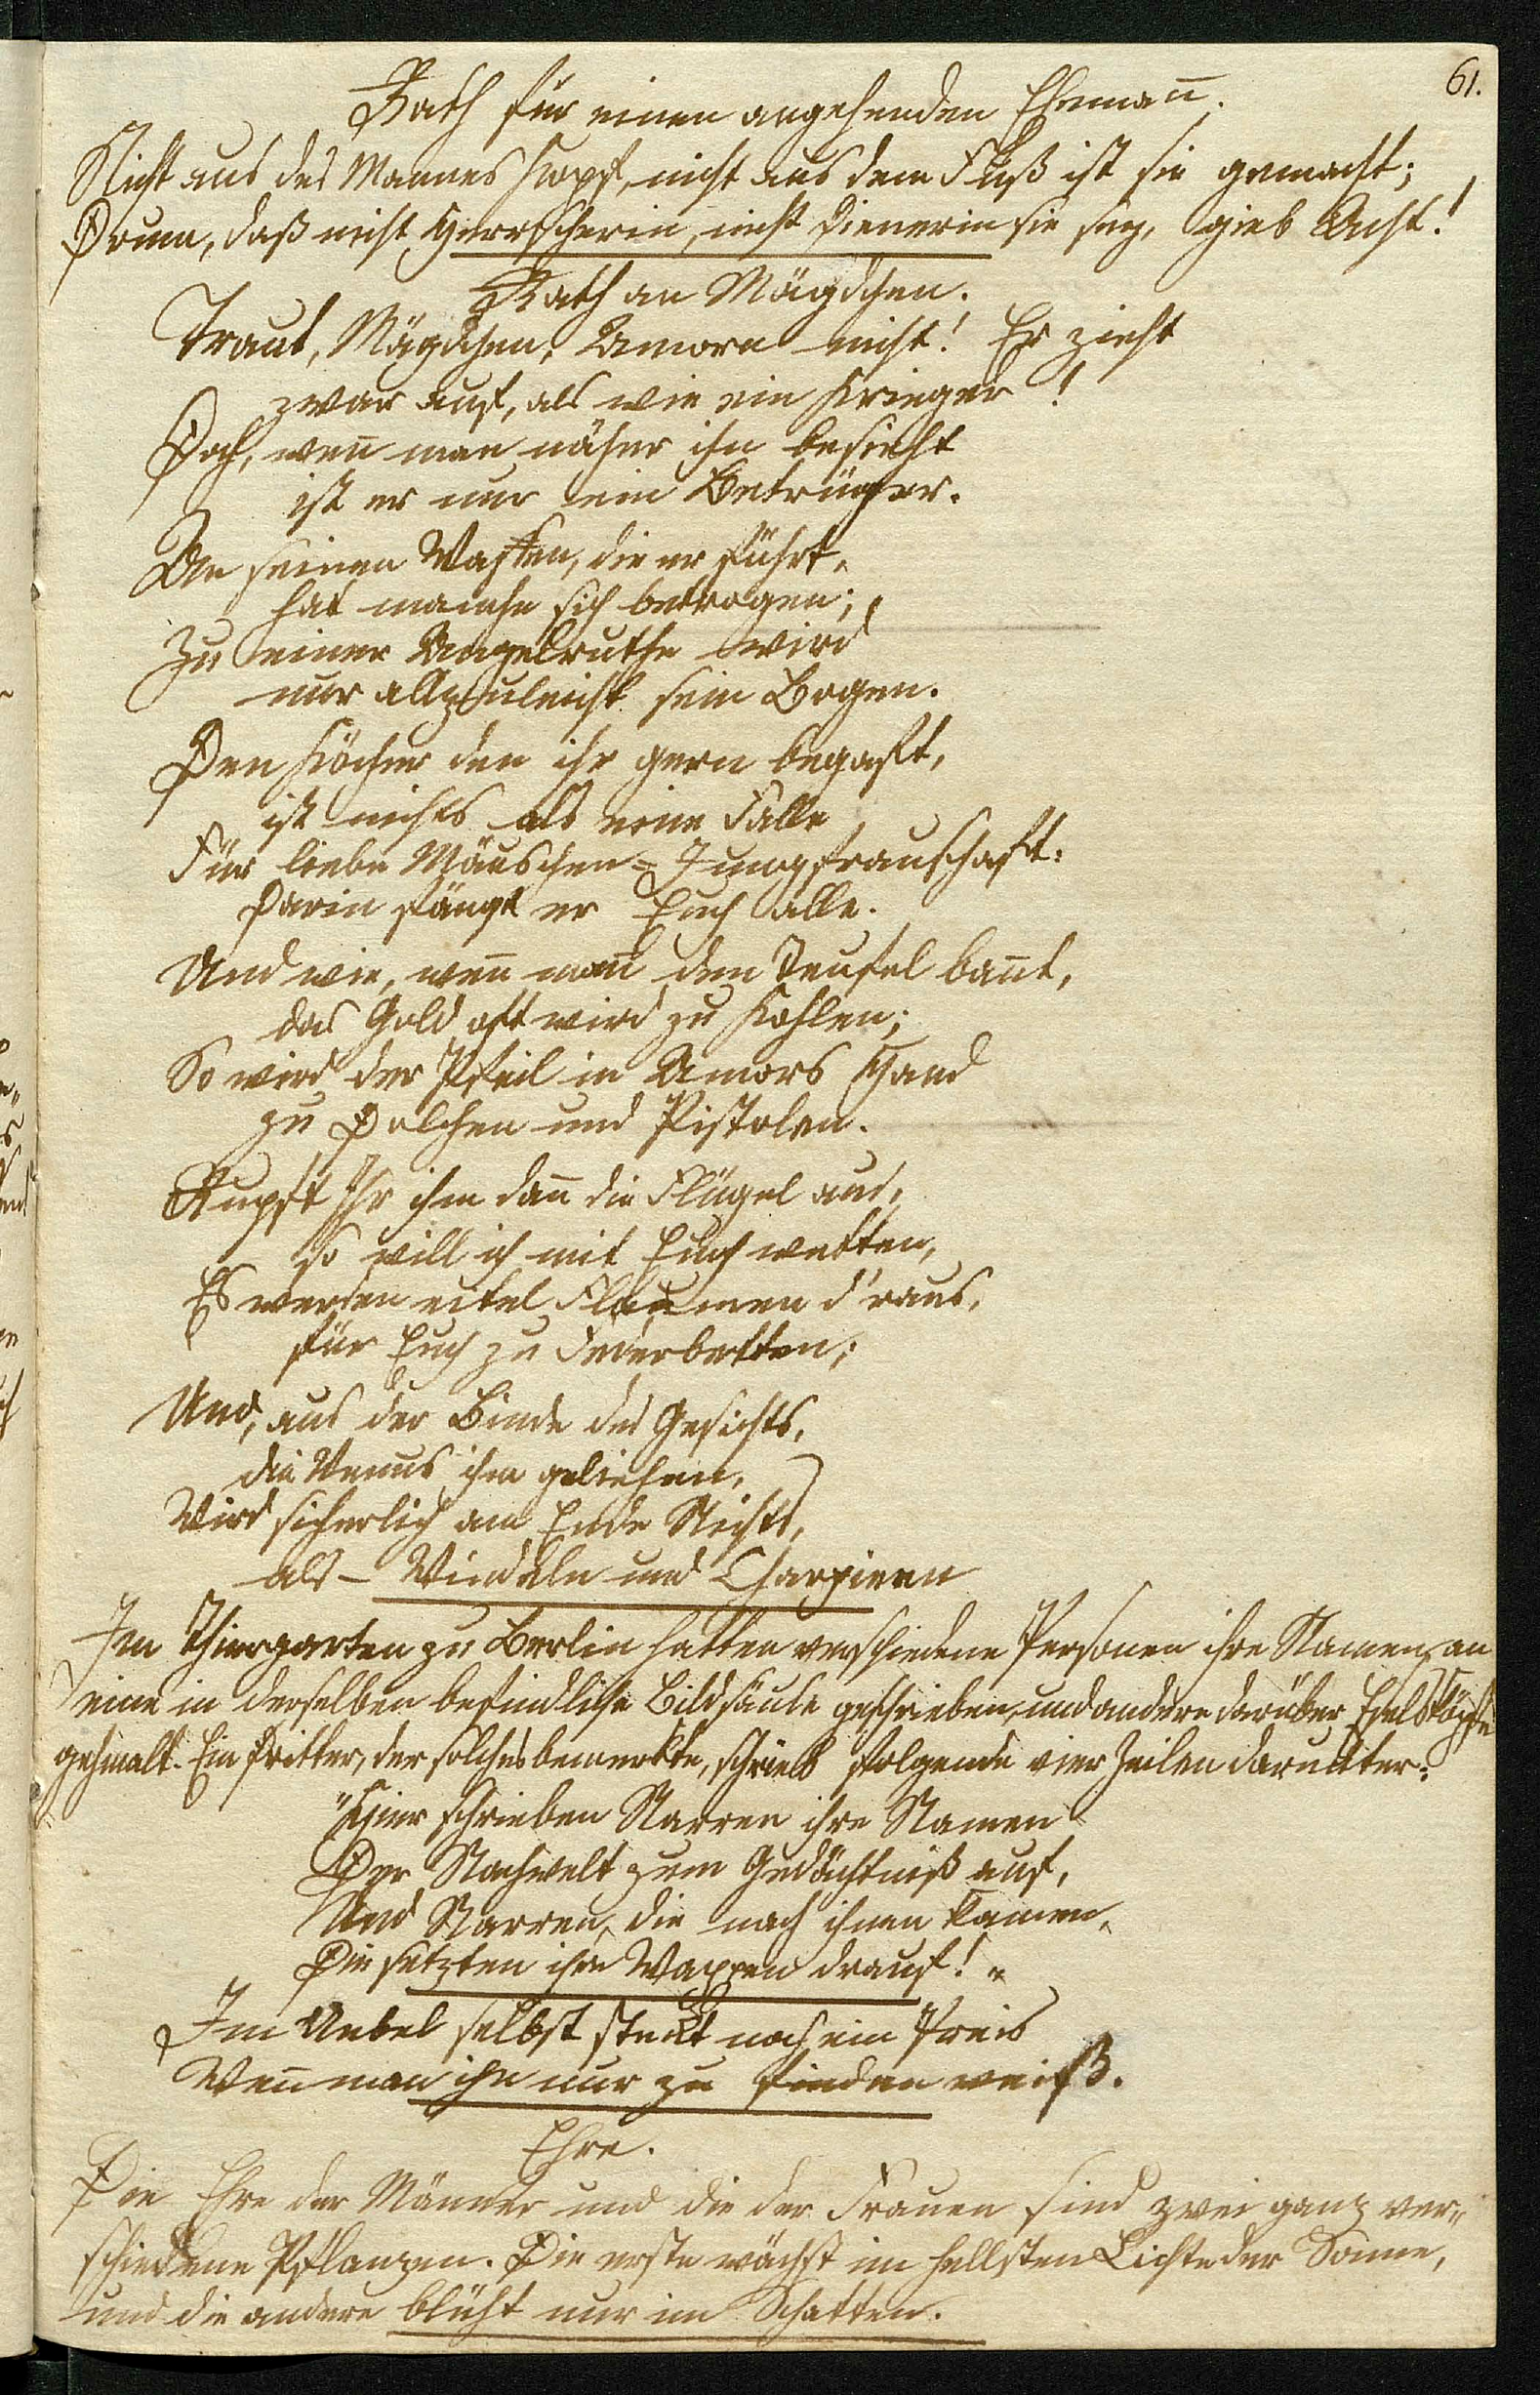 61.
Rath für einen angehenden Ehemañ.
Nicht aus des Mannes Kopf, nicht aus dem Fuß ist sie gemacht;
Drum, daß nicht Herrscherin, nicht Dienerin sie sey, gieb Acht!
Rath an Mägdchen.
Traut, Mägdchen, Amorn nicht! Er zieht
zwar auf, als wie ein Krieger!
Doch, weñ man näher ihn besieht
ist er nur ein Betrüger.
An seinen Waffen, die er führt,
hat manche sich betrogen;
Zu einer Angelruthe wird
nur allzuleicht sein Bogen.
Den Köcher den ihr gern begafft,
ist nichts als eine Falle
Für liebe Mäuschen-Jungfrauschaft:
Darin fängt er Euch alle.
Und wie, weñ mañ den Teufel bañt,
das Gold oft wird zu Kohlen;
So wird der Pfeil in Amors Hand
zu Dolchen und Pistolen.
Rupft Ihr ihm dañ die Flügel aus,
so will ich mit Euch wetten,
Es werden eitel Flaumen d'raus,
für Euch zu Federbetten;
Und, aus der Binde des Gesichts,
die Venus ihm geliehen,
Wird sicherlich am Ende Nichts,
als – Windeln und Charpieen
Im Thiergarten zu Berlin hatten verschiedene Personen ihre Namen an
eine in derselben befindliche Bildsäule geschrieben, und andere darüber Eselsköpfe
gehmalt. Ein Dritter, der solches bemerkte, schrieb folgende vier Zeilen darunter:
"Hier schrieben Narren ihre Namen
Der Nachwelt zum Gedächtniß auf,
Und Narren, die nach ihnen kamen,
Die setzten ihre Wappen drauf!"
Im Uebel selbst steckt noch ein Preis
Weñ man ihn nur zu finden weiß.
Ehre.
Die Ehre der Männer und die der Frauen sind zwei ganz ver-
schiedene Pflanzen. Die erste wächst im hellsten Lichte der Sonne,
und die andere blüht nur im Schatten.